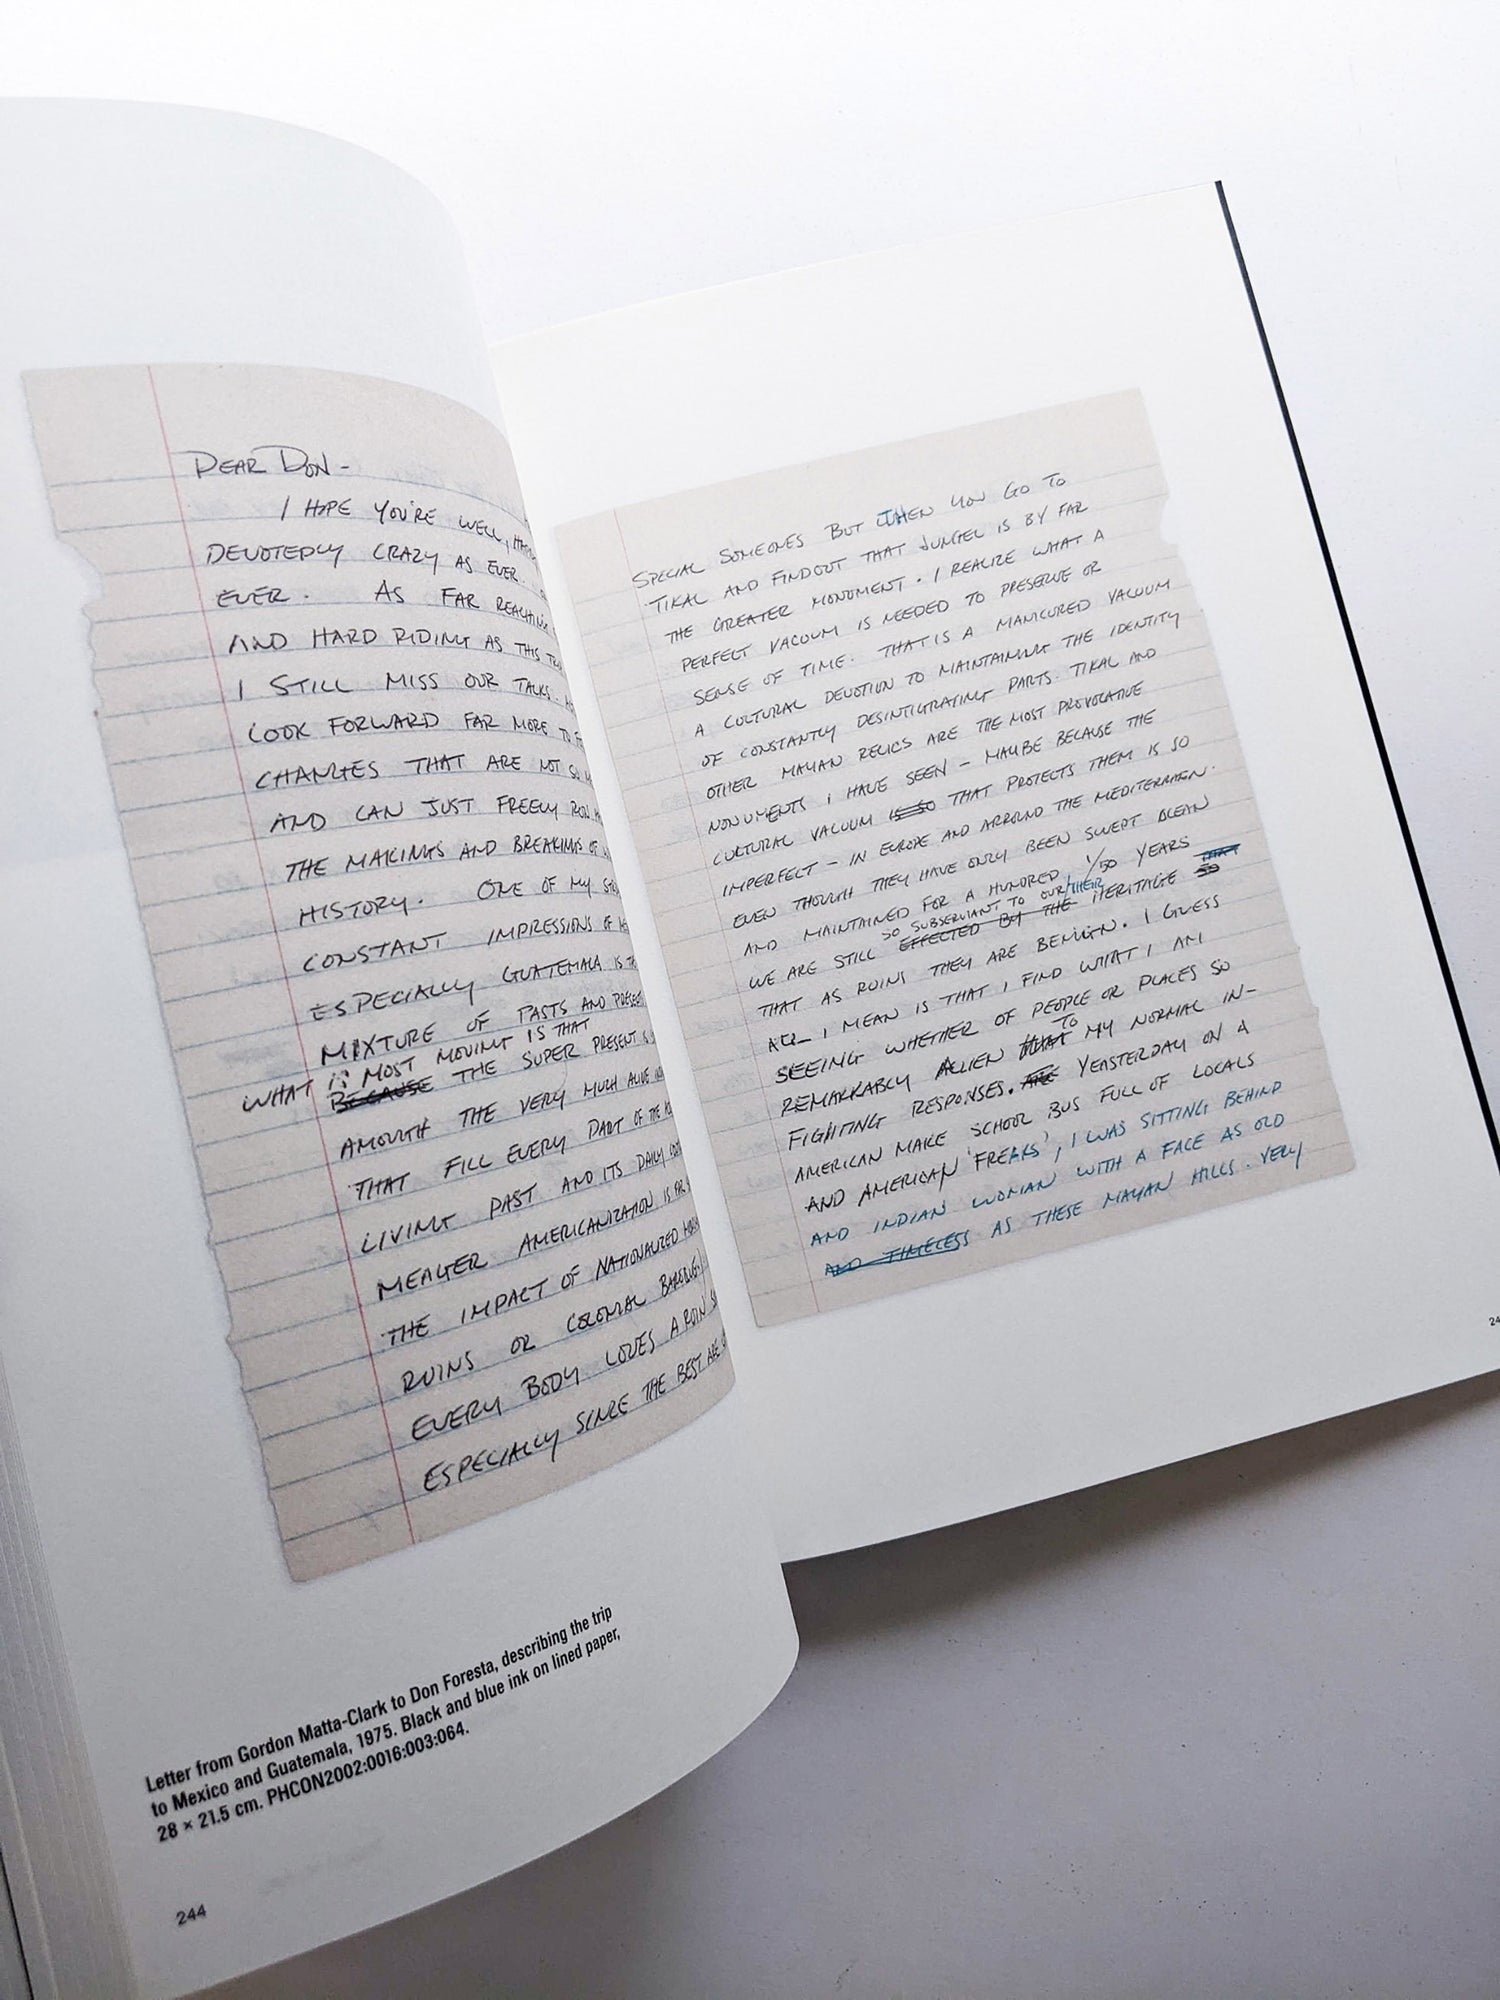 DEAR DON -
I HOPE YOU'RE WELL,
DEVOTEDLY CRAZY AS EVER.
EVER. AS FAR REACHING
AND HARD RIDING AS THIS
I STILL MISS OUR TALKS.
LOOK FORWARD FAR MORE TO
CHANGES THAT ARE NOT SO
AND CAN JUST FREELY RUN
THE MAKINGS AND BREAKINGS OF
HISTORY. ONE OF MY
CONSTANT IMPRESSIONS OF
ESPECIALLY GUATEMALA IS
MIXTURE OF PASTS AND PRESENT
WHAT IS MOST MOVING IS THAT
BECAUSE THE SUPER PRESENT IS
AMOUGH THE VERY MUCH ALIVE
THAT FILL EVERY PART OF THE
LIVING PAST AND ITS DAILY
MEAGER AMERICANIZATION IS FAR
THE IMPACT OF NATIONALIZED
RUINS OR COLONIAL BAROQUE.
EVERY BODY LOVES A RUIN
ESPECIALLY SINCE THE BEST ARE
Letter from Gordon Matta-Clark to Don Foresta, describing the trip
to Mexico and Guatemala, 1975. Black and blue ink on lined paper,
28 × 21.5 cm. PHCON2002:0016:003:064.
244
SPECIAL SOMEONES BUT WHEN YOU GO TO
TIKAL AND FINDOUT THAT JUNGEL IS BY FAR
THE GREATER MONUMENT. I REALIZE WHAT A
PERFECT VACUUM IS NEEDED TO PRESERVE OR
SENSE OF TIME. THAT IS A MANICURED VACUUM
A CULTURAL DEVOTION TO MAINTAINING THE IDENTITY
OF CONSTANTLY DESINTIGRATING PARTS. TIKAL AND
OTHER MAYAN RELICS ARE THE MOST PROVOCATIVE
MONUMENTS I HAVE SEEN - MAYBE BECAUSE THE
CULTURAL VACUUM IS SO THAT PROTECTS THEM IS SO
IMPERFECT - IN EUROPE AND ARROUND THE MEDITERRAEN.
EVEN THOUGH THEY HAVE ONLY BEEN SWEPT CLEAN
AND MAINTAINED FOR A HUNDRED 1/50 YEARS THAT
SO SUBSERVIANT TO OUR/THEIR
WE ARE STILL EFFECTED BY THE HERITAGE SO
THAT AS RUINS THEY ARE BENIGN. I GUESS
ALL I MEAN IS THAT I FIND WHAT I AM
SEEING WHETHER OF PEOPLE OR PLACES SO
TO
REMARKABLY ALIEN THAT MY NORMAL IN-
FIGHTING RESPONSES. ARE YEASTERDAY ON A
AMERICAN MAKE SCHOOL BUS FULL OF LOCALS
AND AMERICAN 'FREAKS', I WAS SITTING BEHIND
AND INDIAN WOMAN WITH A FACE AS OLD
AND TIMELESS AS THESE MAYAN HILLS. VERY